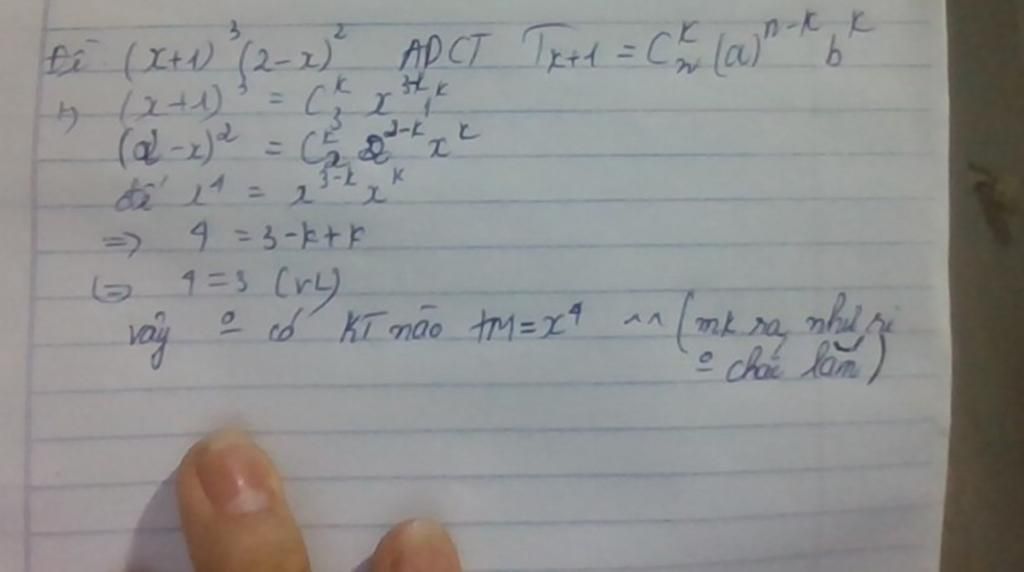 Đề (x+1)³(2-x)² ADCT T_{k+1} = C_n^k (a)^{n-k} b^k
=> (x+1)³ = C_3^k x^{3-k} 1^k
(2-x)² = C_2^k 2^{2-k} x^k
để x⁴ = x^{3-k} x^k
=> 4 = 3-k+k
<=> 4 = 3 (VL)
vậy º có KT nào TM = x⁴ ^^ (mk ra như ri
º chắc lắm)